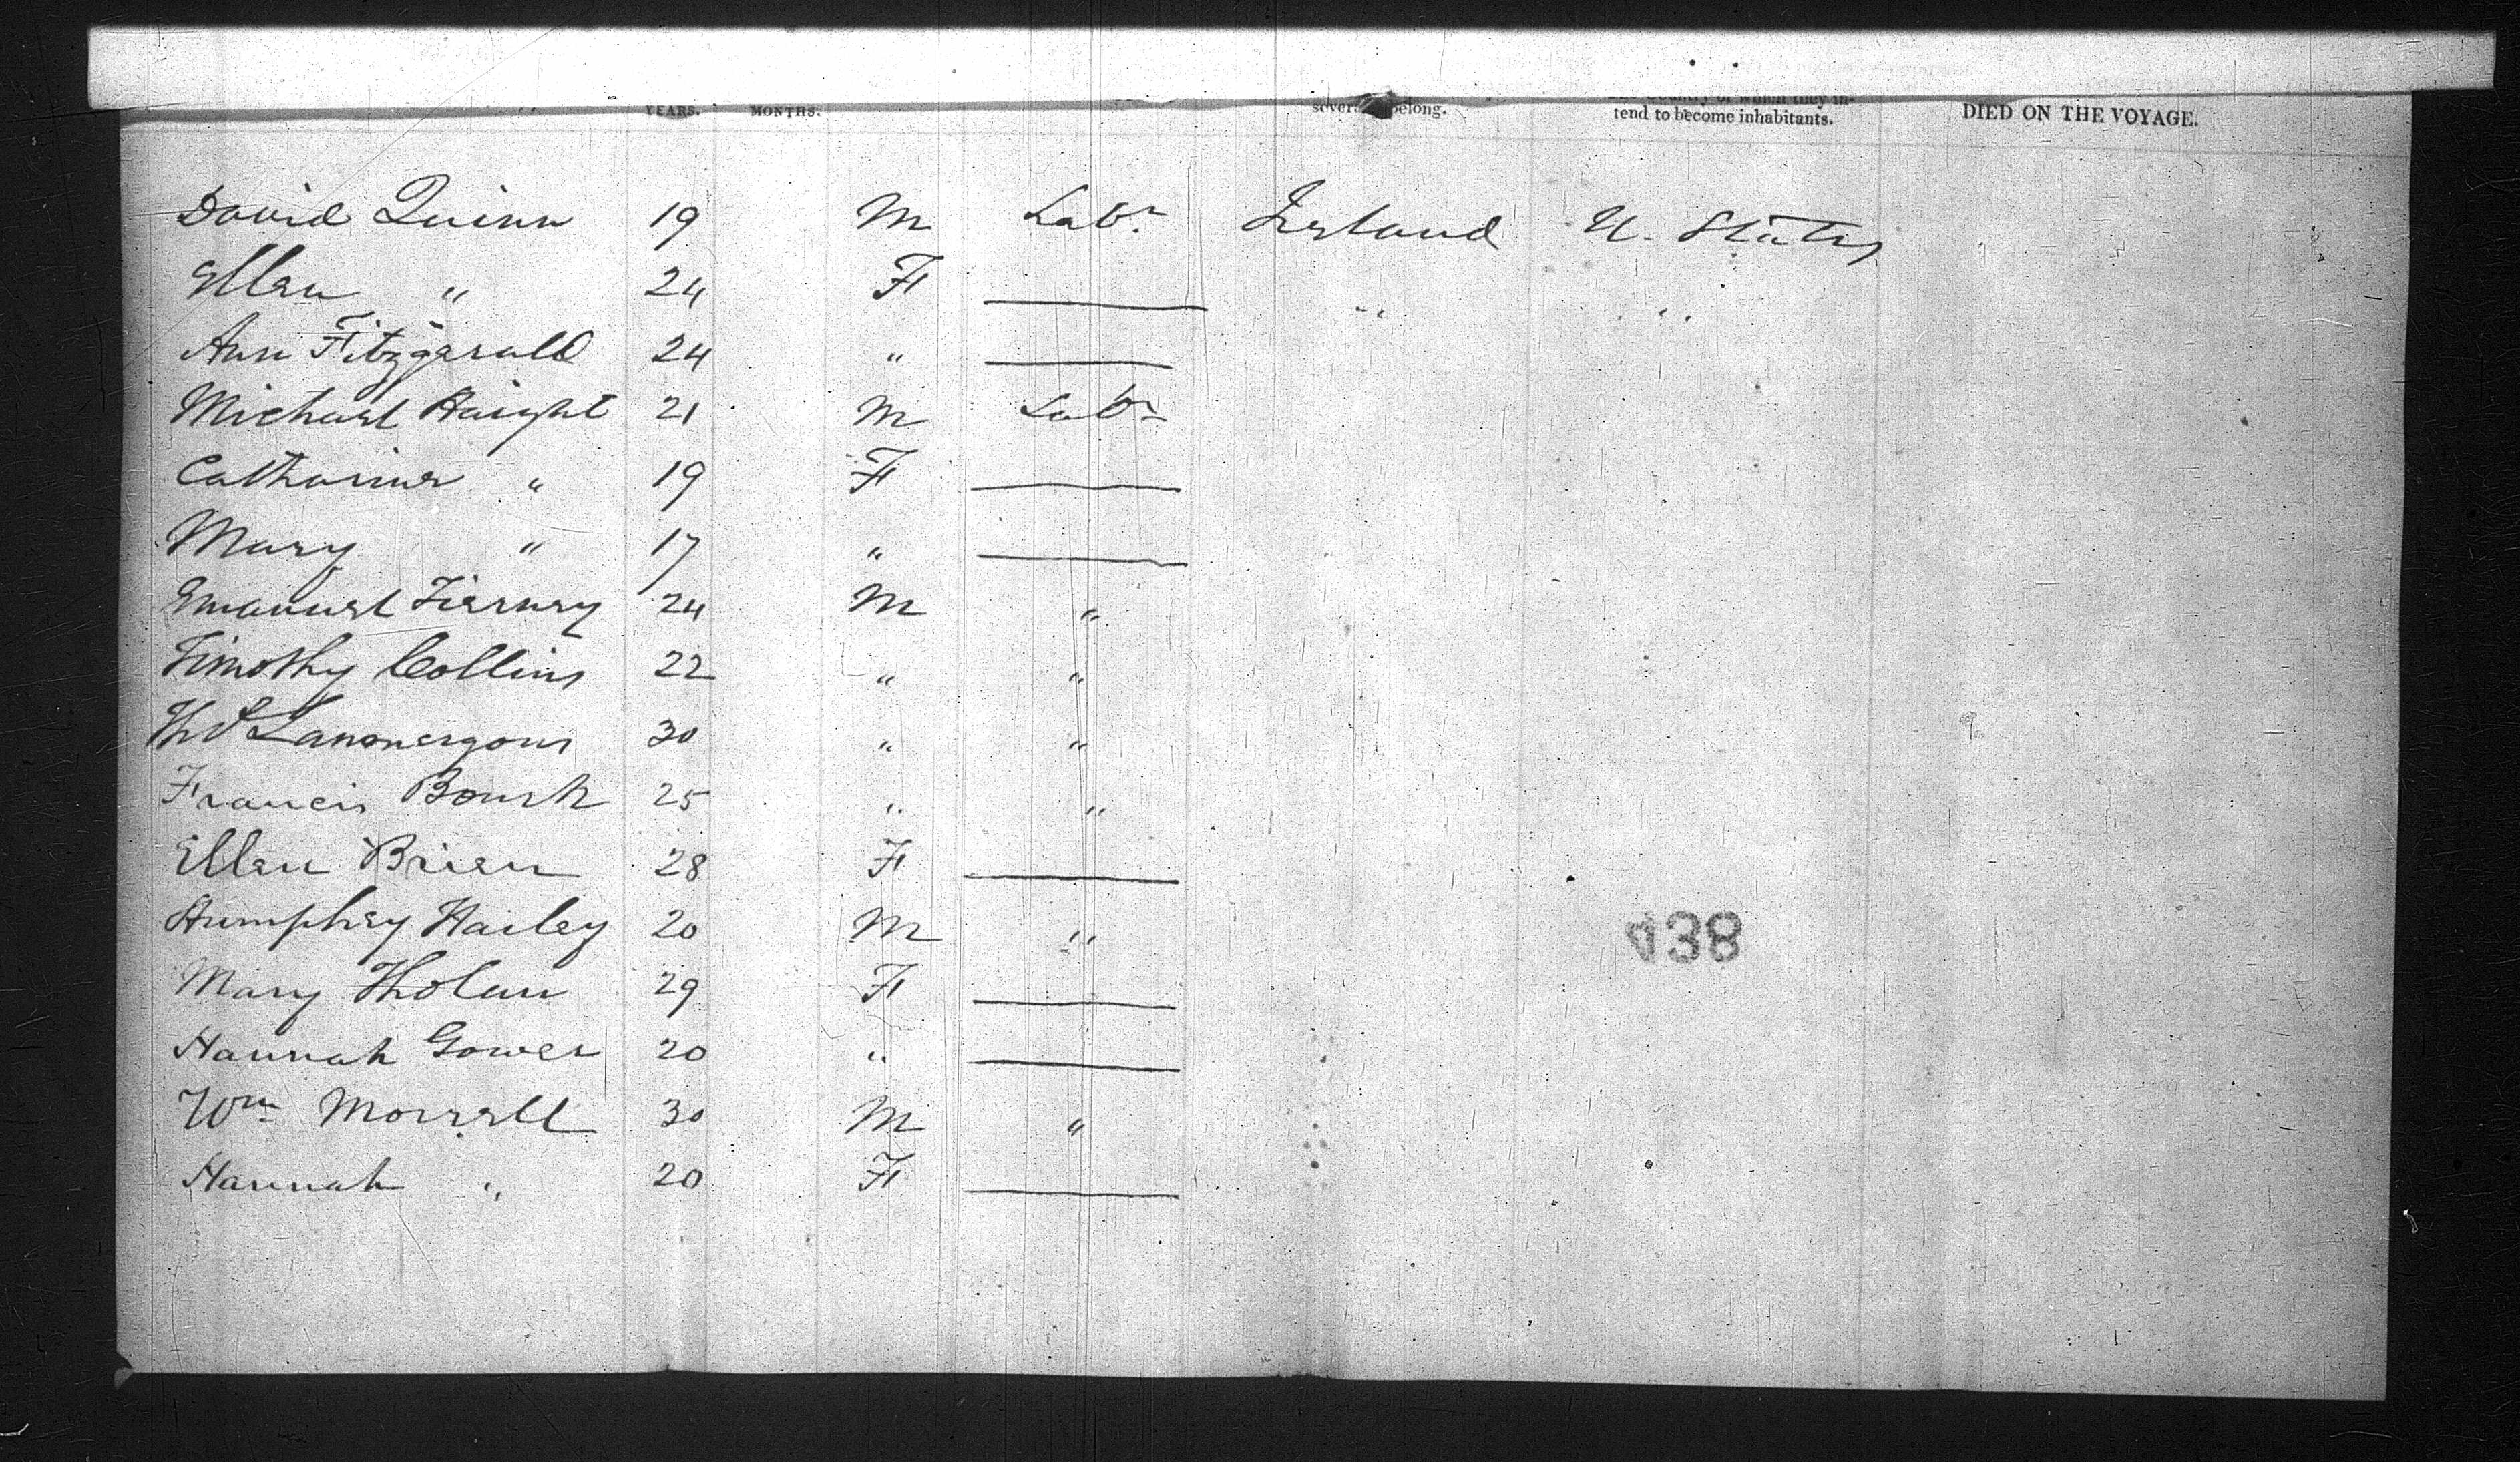 YEARS. MONTHS. several belong. tend to become inhabitants. DIED ON THE VOYAGE.
David Quinn 19 M Labr Ireland U. States
Ellen " 24 F " "
Ann Fitzgerald 24 "
Michael Haight 21 M Labr
Catharine " 19 F
Mary " 17 "
Emanuel Tierney 24 M "
Timothy Collins 22 " "
30 " "
Francis Bourk 25 " "
Ellen Brien 28 F
Humphrey Hailey 20 M "
438
Mary 29 F
Hannah Gower 20 "
Wm Morrell 30 M "
Hannah " 20 F